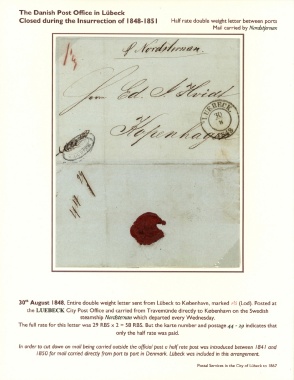 The Danish Post Office in Lübeck
Closed during the Insurrection of 1848-1851
Half rate double weight letter between ports
Mail carried by Nordstjernan
p Nordstiernan.
Ed. J. Hvidt
LUEBECK
30
8
Kopenhagen
30th August 1848. Entire double weight letter sent from Lübeck to København, marked (Lod). Posted at
the LUEBECK City Post Office and carried from Traventünde directly to København on the Swedish
steamship Nordstiernan which departed every Wednesday.
The full rate for this letter was 29 RBS x 2 = 58 RBS. But the karte number and postage 44 - 29 indicates that
only the half rate was paid.
In order to cut down on mail being carried outside the official post a half rate post was introduced between 1841 and
1850 for mail carried directly from port to port in Denmark. Lübeck was included in this arrangement.
Postal Services in the City of Lübeck to 1867